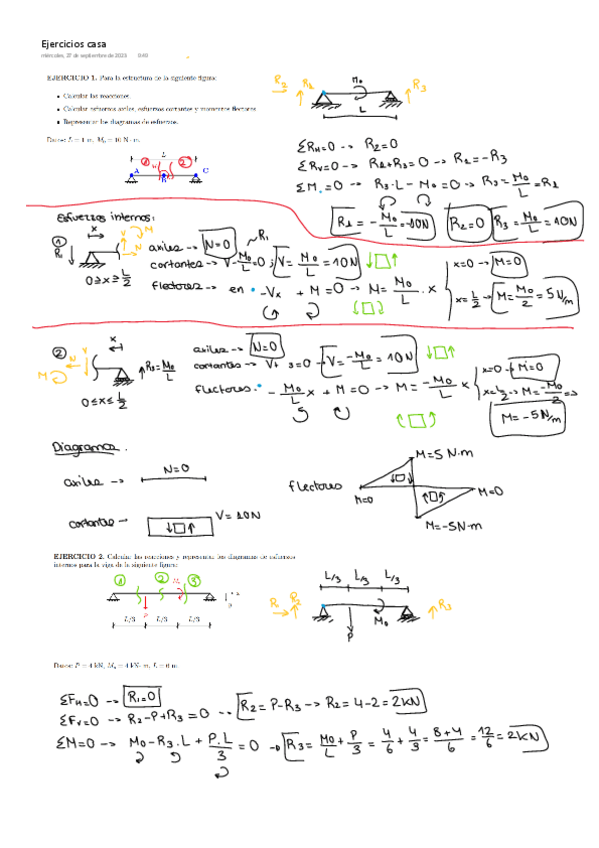 Ejercicios casa
miércoles, 27 de septiembre de 2023 9:40
EJERCICIO 1. Para la estructura de la siguiente figura:
• Calcular las reacciones.
• Calcular esfuerzos axiles, esfuerzos cortantes y momentos flectores.
• Representar los diagramas de esfuerzos.
Datos: L = 1 m, M₀ = 10 N·m.
L
① ②
A B C
R₂ R₁ M₀ R₃
L
ΣR_H=0 -> R₂=0
ΣR_V=0 -> R₁+R₃=0 -> R₁=-R₃
ΣM=0 -> R₃·L - M₀=0 -> R₃=M₀/L=R₁
R₁=-M₀/L=-10N R₂=0 R₃=M₀/L=10N
Esfuerzos internos:
① x R₁ V M N
0≥x≥L/2
axiles -> N=0 R₁
cortantes -> V-M₀/L=0; V=M₀/L=10N ↓□↑
flectores -> en • -Vx + M=0 -> M=M₀/L·x
x=0 -> M=0
x=L/2 -> M=M₀/2=5N/m
② x M N V R₃=M₀/L
0≤x≤L/2
axiles -> N=0
cortantes -> V+ =0 -> V=-M₀/L=10N ↓□↑
flectores: • -M₀/L x + M=0 -> M=-M₀/L x
x=0 -> M=0
x=L/2 -> M=-M₀/2 =>
M=-5N/m
Diagramas.
axiles -> N=0
cortante -> ↓□↑ V=10N
flectores M=0 M=5 N·m M=0 M=-5N·m
EJERCICIO 2. Calcular las reacciones y representar los diagramas de esfuerzos
internos para la viga de la siguiente figura:
① ② ③
L/3 L/3 L/3
L/3 L/3 L/3
R₁ R₂ P M₀ R₃
Datos: P = 4 kN, M₀ = 4 kN·m, L = 6 m.
ΣF_H=0 -> R₁=0
ΣF_V=0 -> R₂-P+R₃=0 -> R₂=P-R₃ -> R₂=4-2=2kN
ΣM=0 -> M₀-R₃·L+P·L/3=0 -> R₃=M₀/L+P/3=4/6+4/3=8+4/6=12/6=2kN